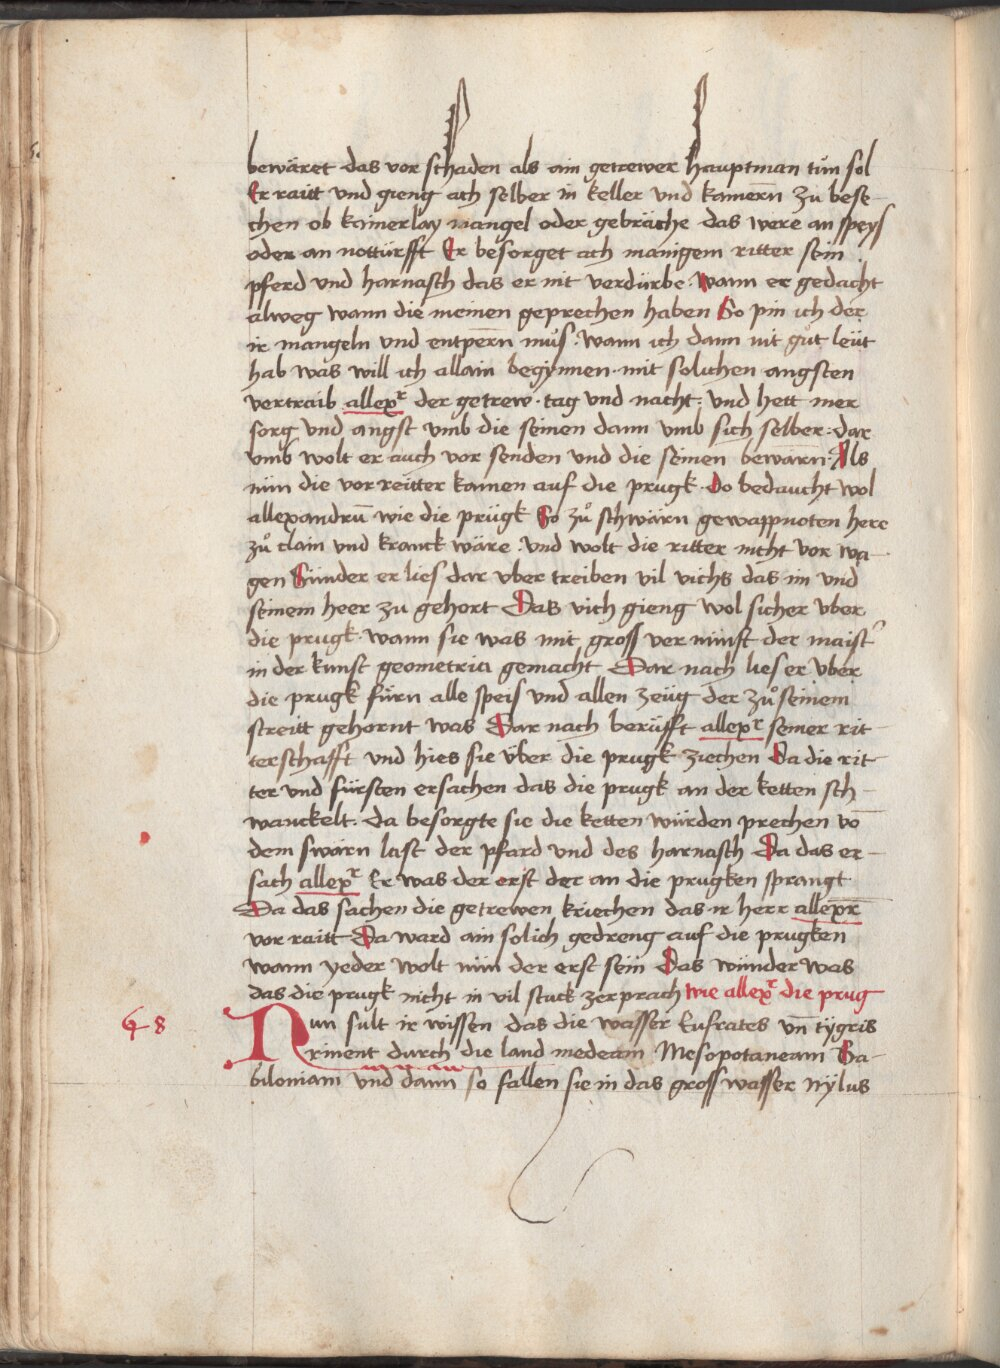 bewäret das vor schaden als ain getrewer hauptman tůn sol
Er raitt vnd gieng ach selber in keller vnd kamern̄ zu bese-
chen ob kainerlay mangel oder gebräche das were an speys
oder an nottürfft Er besorget ach manigem ritter sein
pferd vnd harnasch das er nit verdürbe · wann er gedacht
alweg wann die meinen geprechen haben So pin ich der
ir mangeln vnd entpern̄ můs · wann ich dann nit gůt leüt
hab was will ich allain begynnen · mit solichen angsten
vertraib allexr der getrew · tag vnd nacht : vnd hett mer
sorg vnd angst vmb die seinen dann vmb sich selber : dar
vmb wolt er auch vor senden vnd die seinen bewarn · Als
nün die vor reitter kamen auf die prugk · Do bedaucht wol
allexandrū wie die prügk So zů schwärn gewappnoten here
zů clain vnd kranck wäre : vnd wolt die ritter nicht vor wa-
gen Sünder er lies dar vber treiben vil vichs das im vnd
seinem heer zu gehort Das vich gieng wol sicher vber
die prugk · wann sie was mit gross vernünft der maist
in der kunst geometria gemacht Dar nach lies er vber
die prugk fürn alle speis vnd allen zeüg der zů seinem
streitt gehornt was Dar nach berüfft allexr seiner rit-
terschafft vnd hies sie über die prugk ziechen Da die rit-
ter vnd fürsten ersachen das die prugk an der ketten sch-
wanckelt · da besorgte sie die ketten würden prechen vō
dem swarn last der pfard vnd des harnasch Da das er-
sach allexr Er was der erst der an die prugken sprangt
Da das sachen die getrewen kriechen das ir herr allexr
vor raitt Da ward ain solich gedreng auf die prugken
wann yeder wolt nün der erst sein Das wünder was
das die prugk nicht in vil stuck zerprach wie allexr die prug
68
Nun sult ir wissen das die wasser Eufrates vn̄ tygris
rinent durch die land medeam Mesopotaneam Ba-
biloniam vnd dann so fallen sie in das gross wasser nÿlus